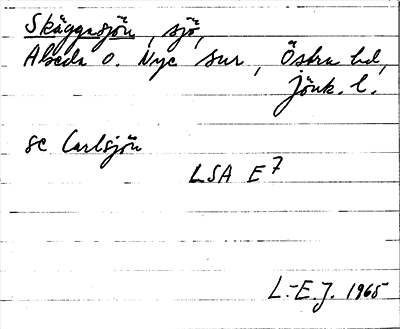 Skäggasjön, sjö,
Alseda o. Nye snr, Östra hd,
Jönk. l.
se Carlsjön
LSA E7
L.-E.J. 1965